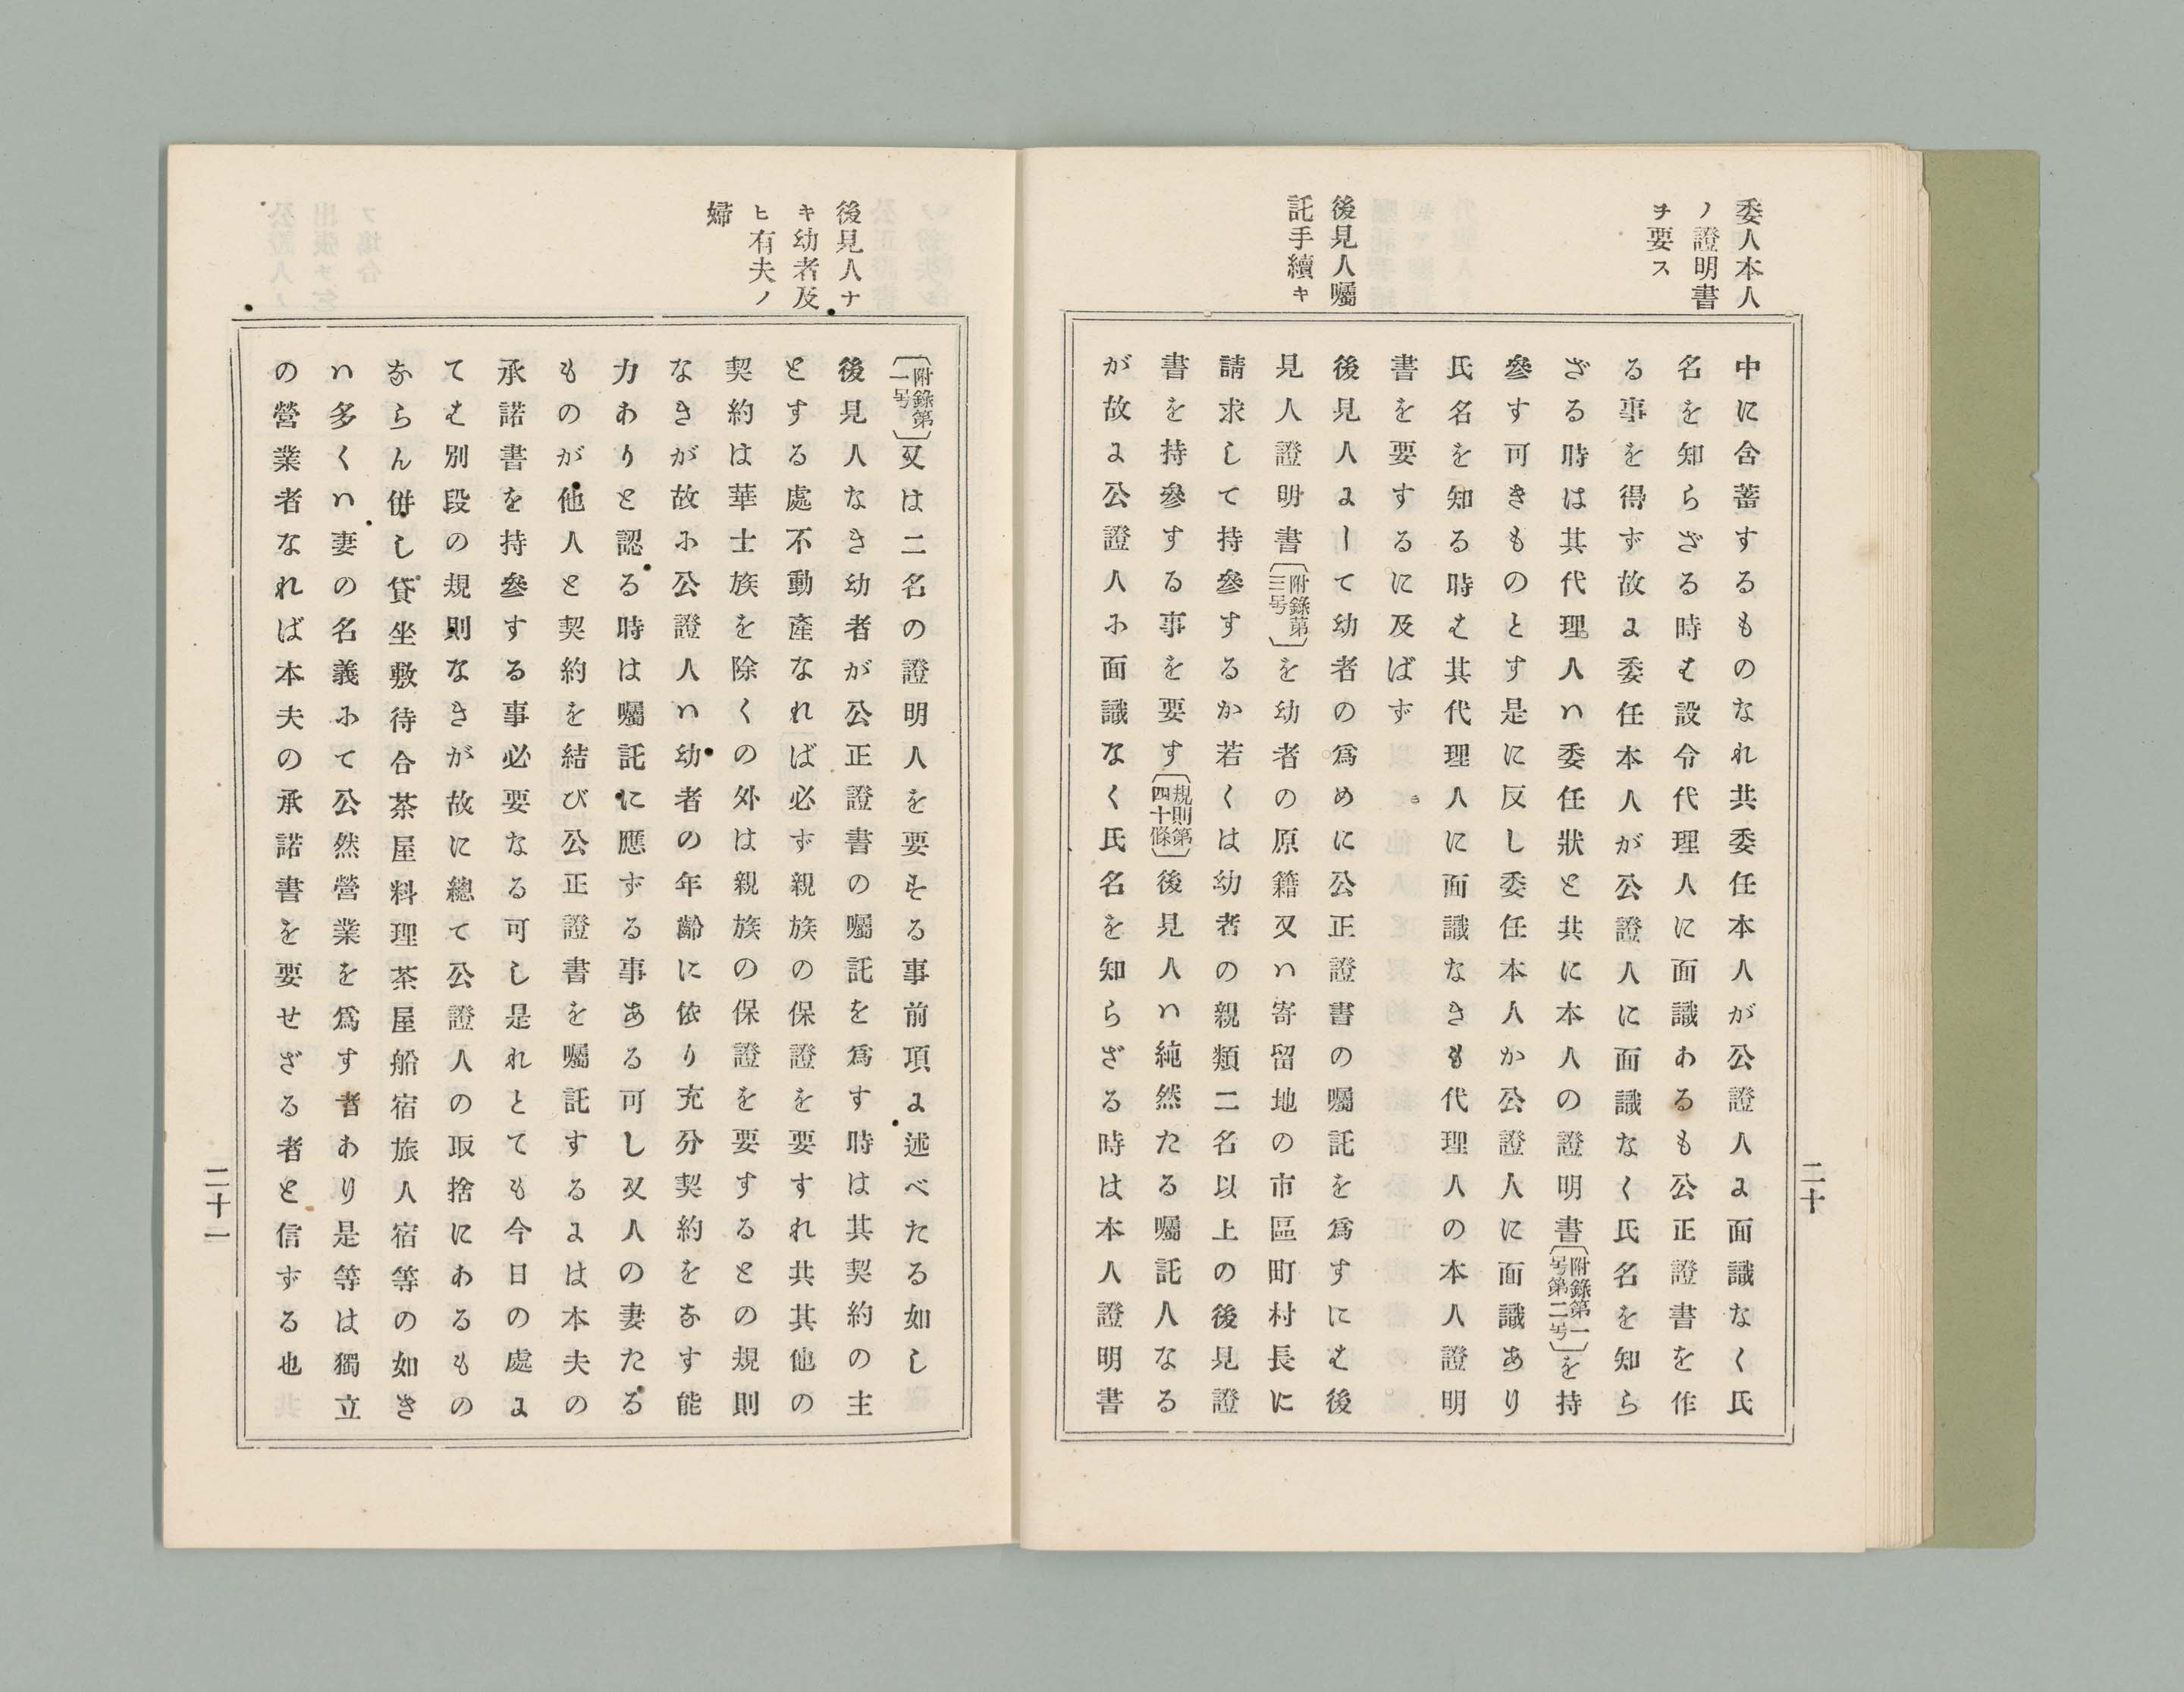 委人本人
ノ證明書
ヲ要ス
後見人囑
託手續キ
中に含蓄するものなれ共委任本人が公證人に面識なく氏
名を知らざる時は設令代理人に面識あるも公正證書を作
る事を得ず故に委任本人が公證人に面識なく氏名を知ら
ざる時は其代理人ハ委任狀と共に本人の證明書〔附錄第一号第二号〕を持
參す可きものとす是に反し委任本人か公證人に面識あり
氏名を知る時は其代理人に面識なきも代理人の本人證明
書を要するに及ばず
後見人にして幼者の爲めに公正證書の囑託を爲すには後
見人證明書〔附錄第三号〕を幼者の原籍又ハ寄留地の市區町村長に
請求して持參するか若くは幼者の親類二名以上の後見證
書を持參する事を要す〔規則第四十條〕後見人ハ純然たる囑託人なる
が故に公證人に面識なく氏名を知らざる時は本人證明書
二十
後見人ナ
キ幼者及
ヒ有夫ノ
婦
〔附錄第一号〕又は二名の證明人を要する事前項に述べたる如し
後見人なき幼者が公正證書の囑託を爲す時は其契約の主
とする處不動產なれば必ず親族の保證を要すれ共其他の
契約は華士族を除くの外は親族の保證を要するとの規則
なきが故に公證人ハ幼者の年齡に依り充分契約をなす能
力ありと認る時は囑託に應ずる事ある可し又人の妻たる
ものが他人と契約を結び公正證書を囑託するには本夫の
承諾書を持參する事必要なる可し是れとても今日の處に
ては別段の規則なきが故に總て公證人の取捨にあるもの
ならん併し貸坐敷待合茶屋料理茶屋船宿旅人宿等の如き
ハ多くハ妻の名義にて公然營業を爲す者あり是等は獨立
の營業者なれば本夫の承諾書を要せざる者と信ずる也
二十一